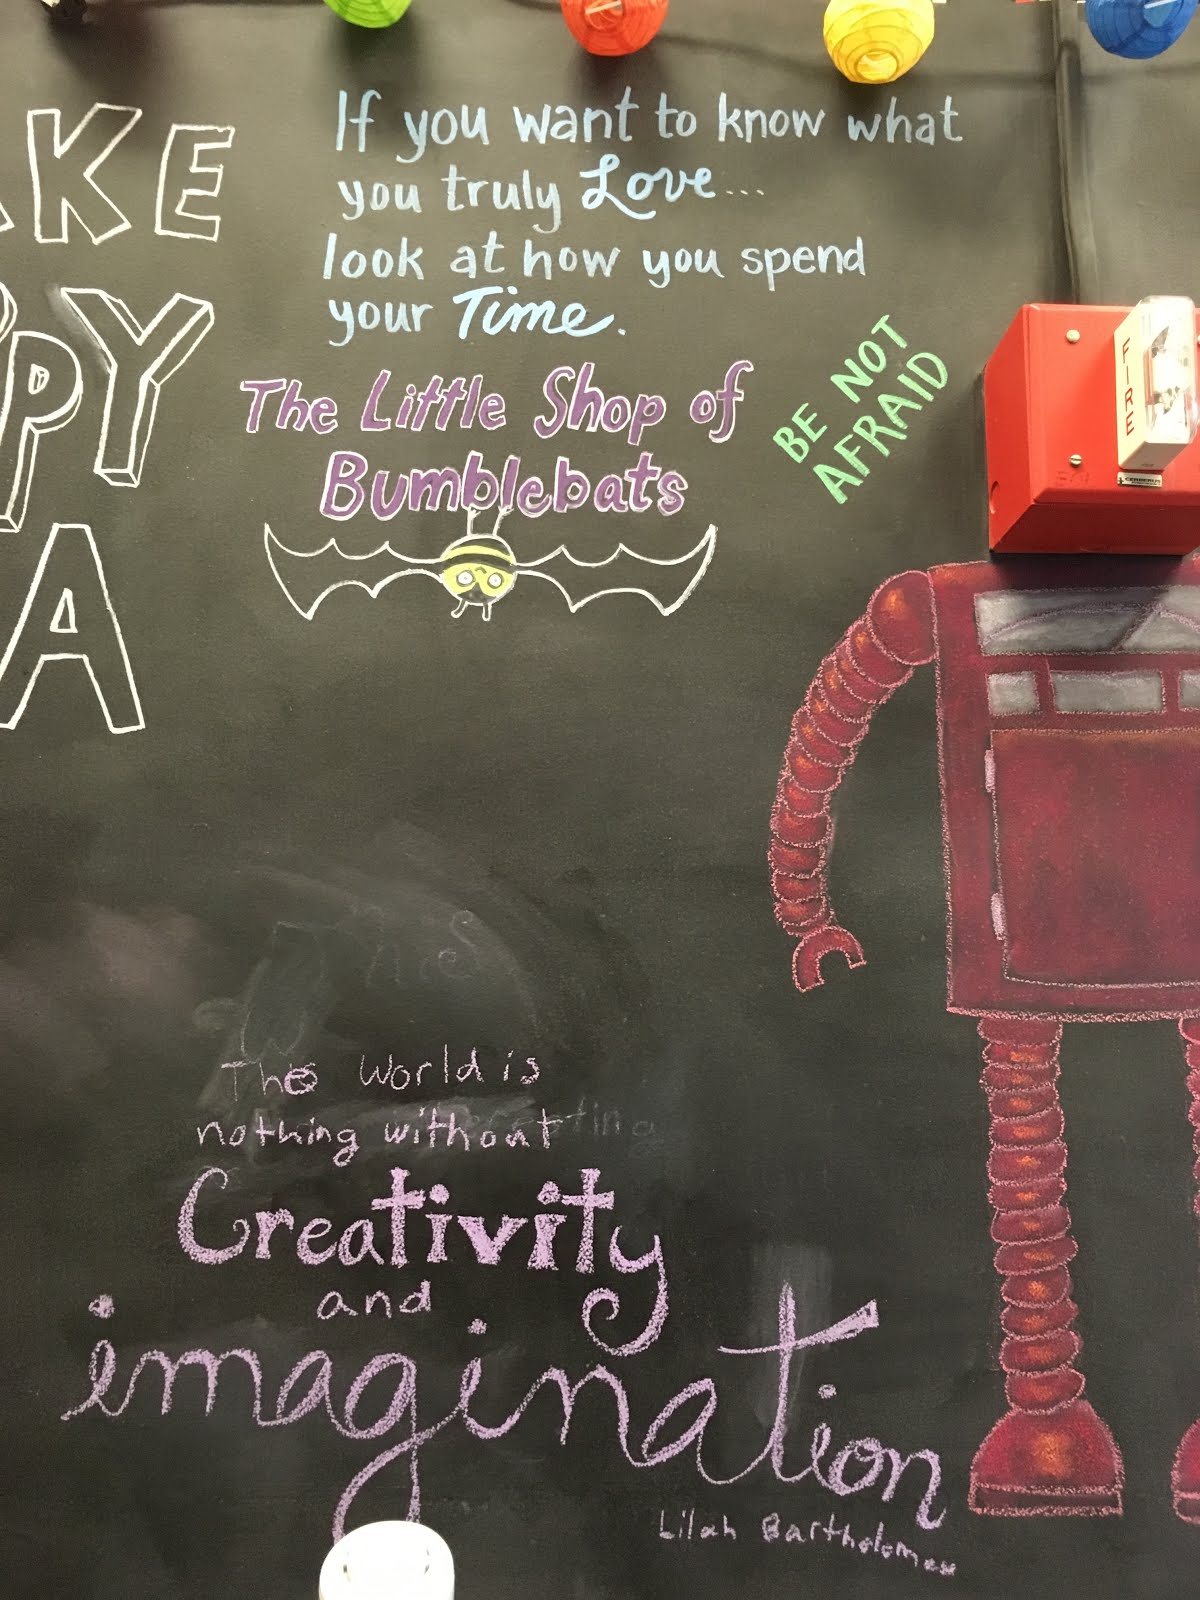 KE
PY
A
If you want to know what
you truly Love...
look at how you spend
your Time.
The Little Shop of
Bumblebats
BE NOT
AFRAID
FIRE
CERBERUS
The World is
nothing without
Creativity
and
imagination
Lilah Bartholomew